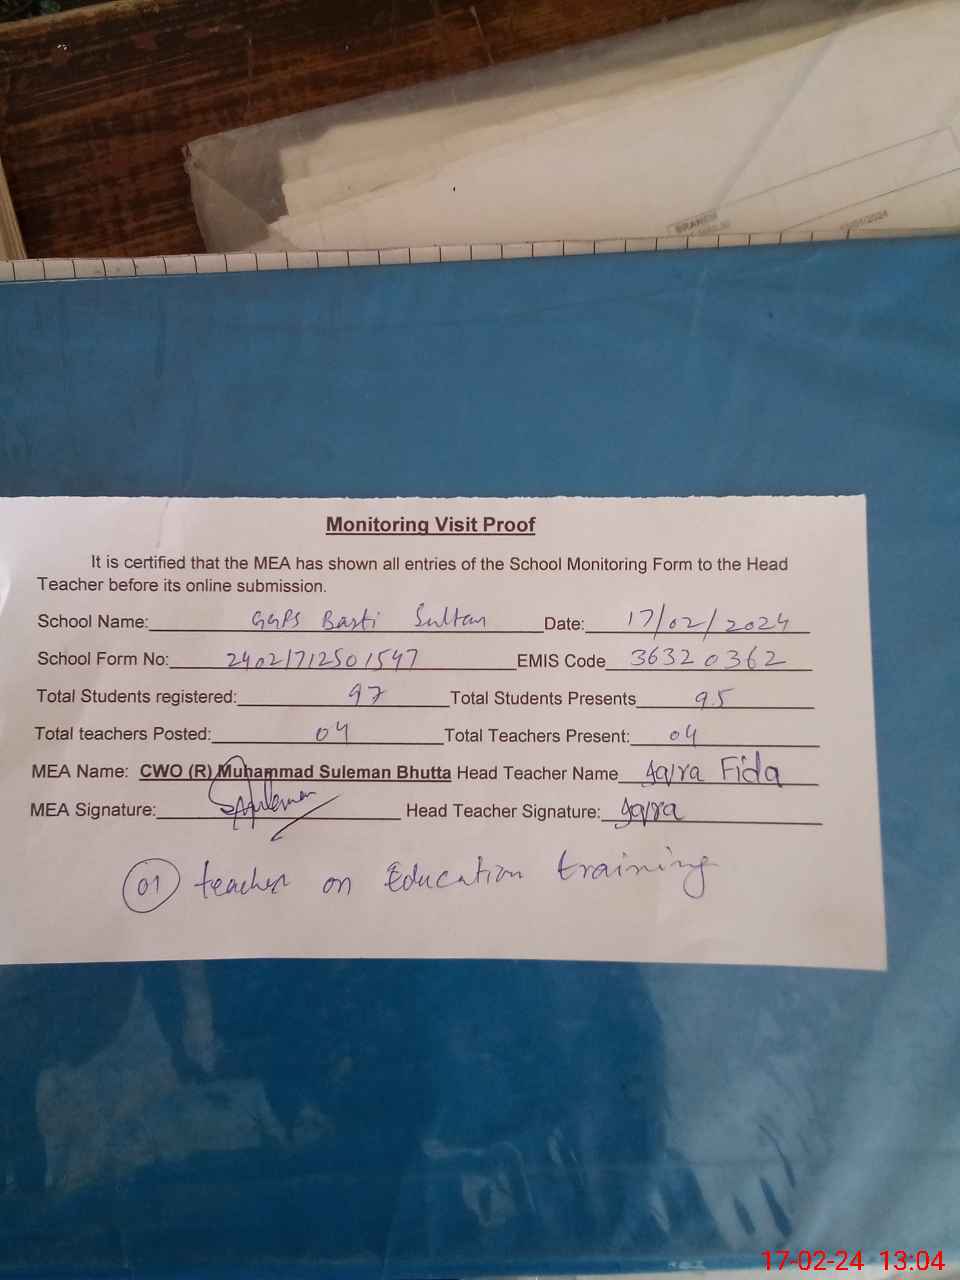 BRANCH
/01/2024
Monitoring Visit Proof
It is certified that the MEA has shown all entries of the School Monitoring Form to the Head
Teacher before its online submission.
School Name: GGPS Basti Sultan Date: 17/02/2024
School Form No: 24021712501547 EMIS Code 36320362
Total Students registered: 97 Total Students Presents 95
Total teachers Posted: 04 Total Teachers Present: 04
MEA Name: CWO (R) Muhammad Suleman Bhutta Head Teacher Name Iqra Fida
MEA Signature: Suleman Head Teacher Signature: Iqra
01 teacher on Education training
17-02-24 13:04